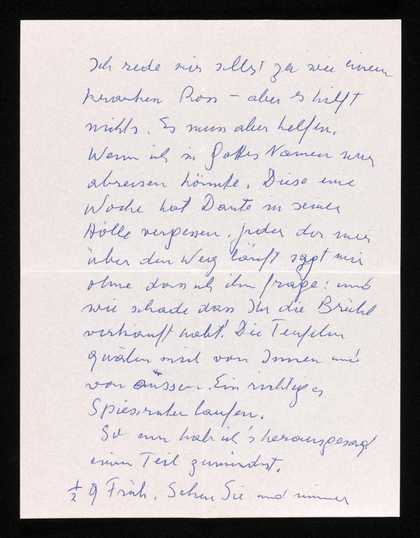 Ich rede mir selbst zu wie einem
kranken Ross – aber es hilft
nichts. Es muss aber helfen.
Wenn ich in Gottes Namen nur
abreisen könnte. Diese eine
Woche hat Dante in seiner
Hölle vergessen. Jeder der mir
über den Weg läuft sagt mir
ohne dass ich ihn frage: und
wie schade dass Ihr die Brühl
verkauft habt! Die Teufeln
quälen mich von Innen und
von aussen. Ein richtiges
Spiessrutenlaufen.
So nun hab ich's herausgesagt
einen Teil zumindest.
½ 9 Früh. Sehen Sie und immer